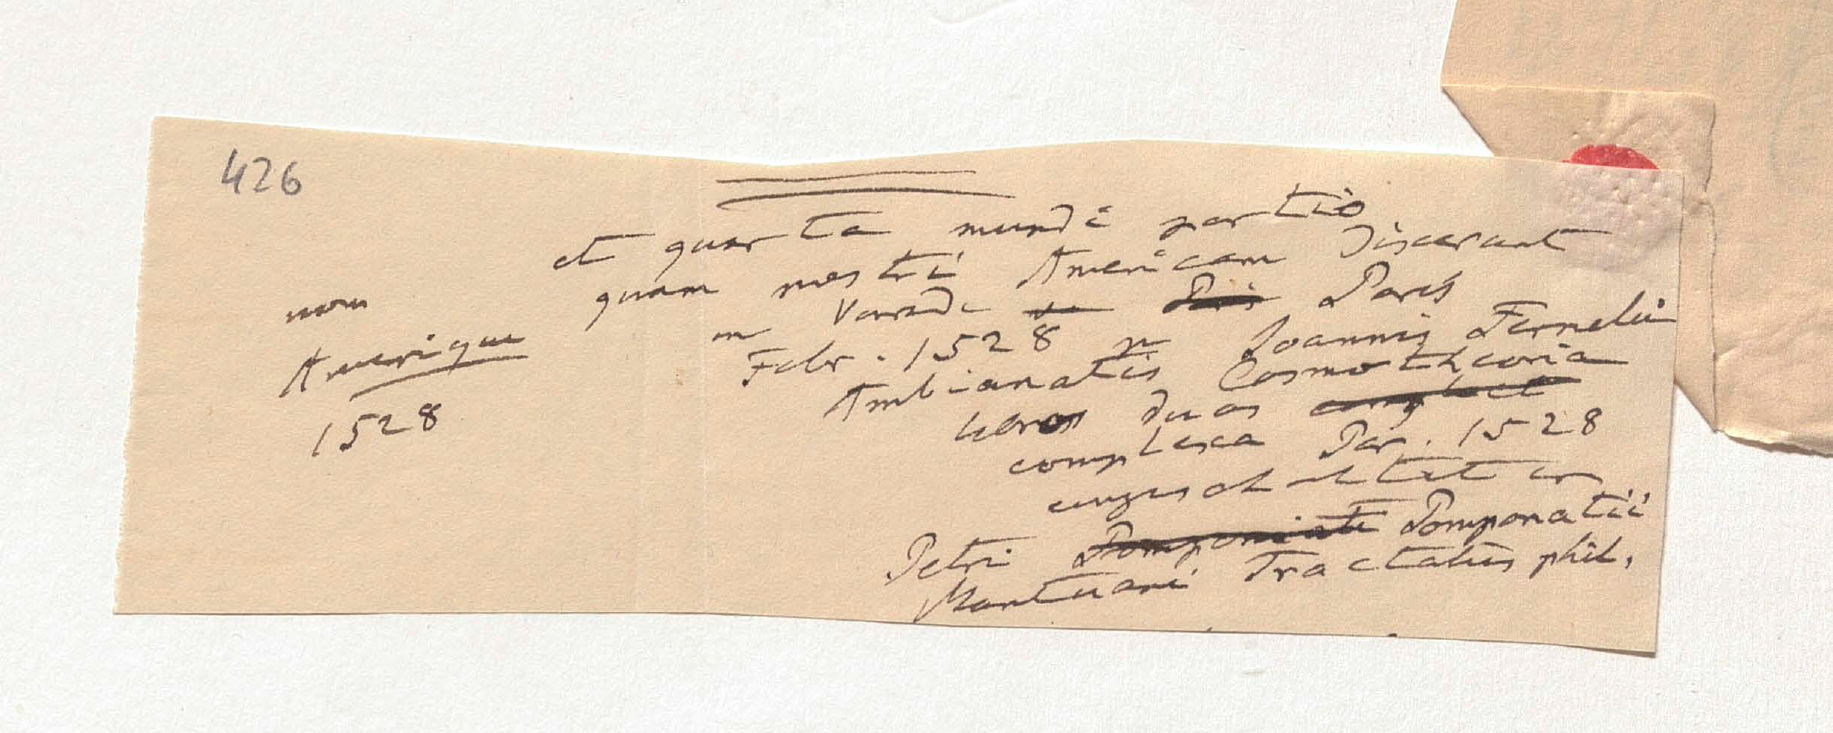 426
et quarta mundi portio
quam nostri Americam dixerunt
nom
Amerique
1528
Paris
Febr. 1528 Joannis Fernelii
Ambianatis Cosmotheoria
libros duos complect
complexa Par. 1528
Petri Pomponiati Pomponatii
Mantuani Tractatus phil.